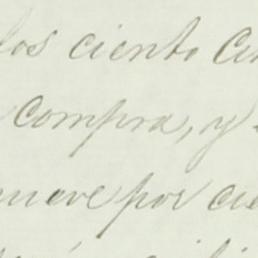 los ciento Ci
compra, y
nueve por cie